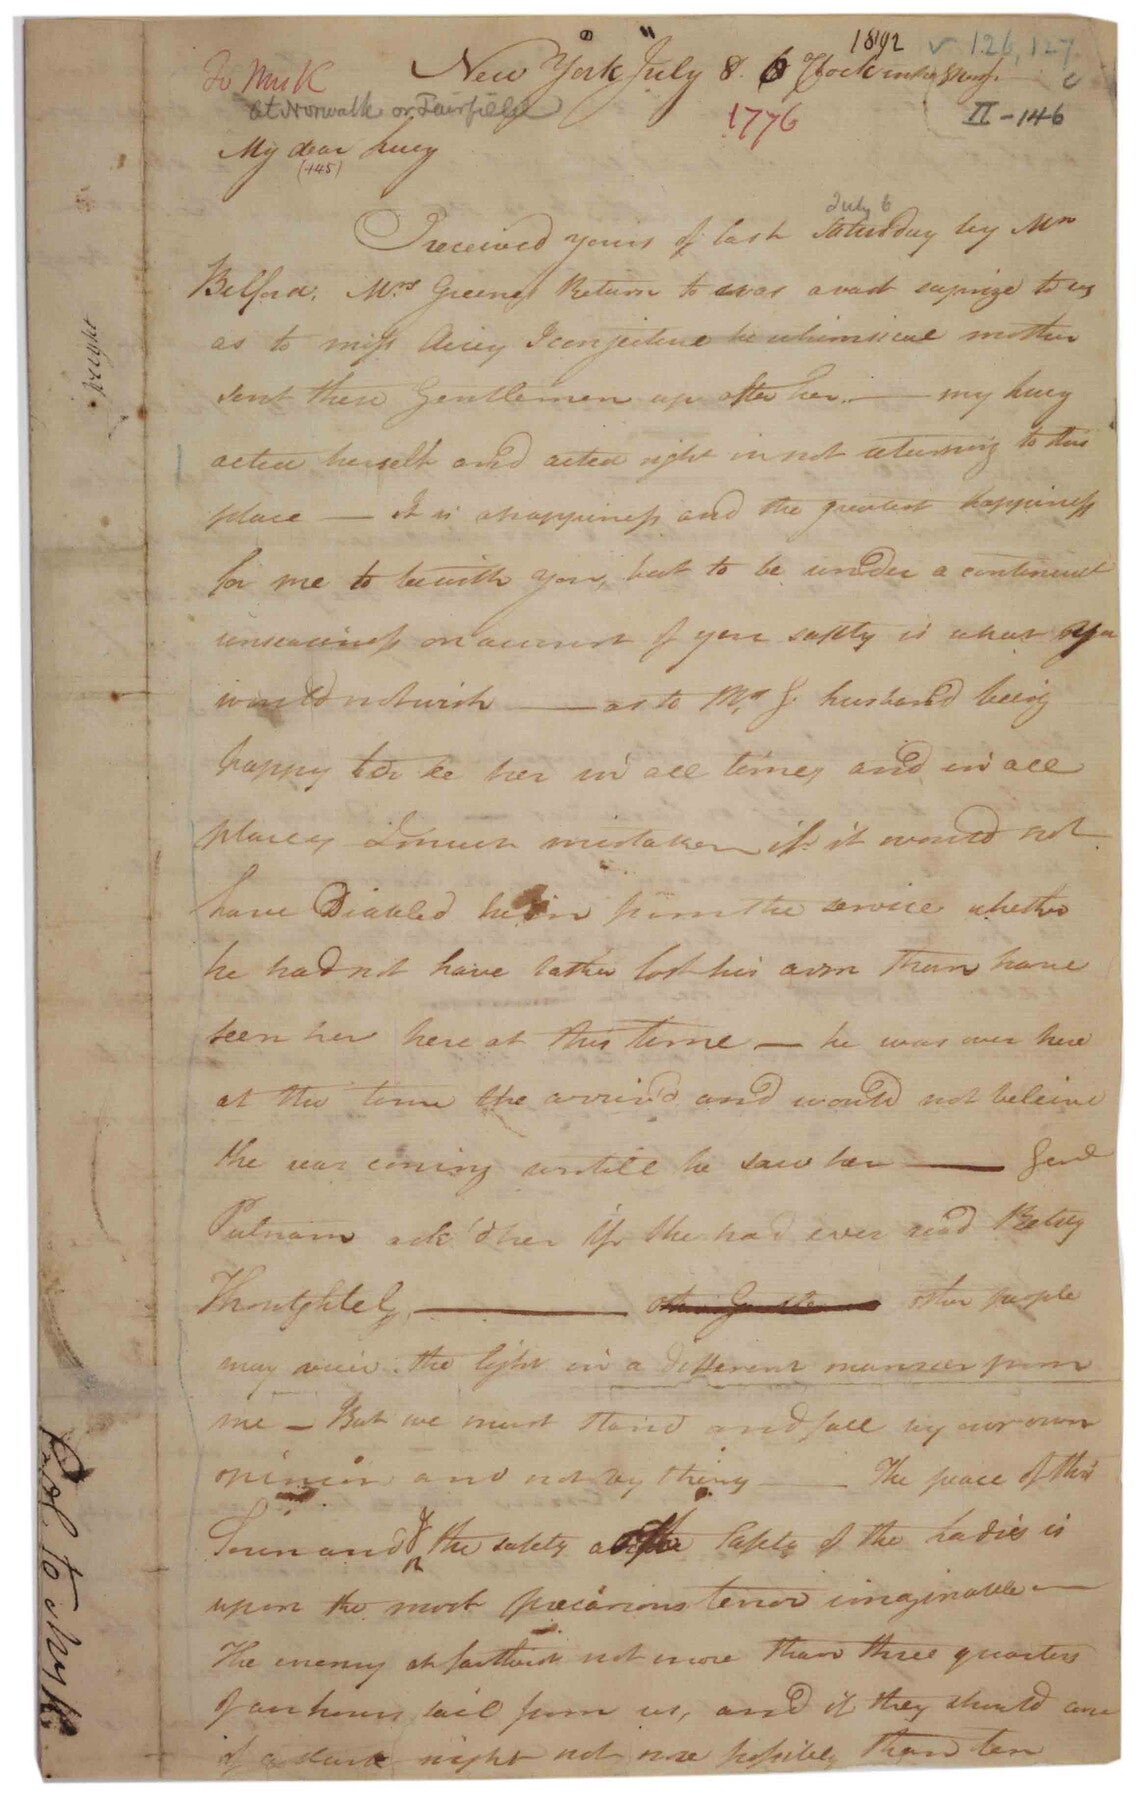 1892 126, 127
New York July 8. 6 Clock in the Morng
To Mrs K
at Norwalk or Fairfield
1776
II - 146
My dear Lucy
(145)
July 6
I received yours of last Saturday by Mr
Belford. Mrs Greenes Return to was a vast suprize to us
as to miss Airey I conjecture he whimsical mother
sent these Gentlemen up after her. — my Lucy
acted herself and acted right in not returning to this
place — It is a happiness and the greatest happiness
for me to be with you, but to be under a continual
uneasiness on account of your safety is what you
would not wish — as to Mrs G. husband being
happy to see her in all times and in all
places I much mistaken if it would not
have Diabled him from the service whether
he had not have rather lost his arm than have
seen her here at this time — he was over here
at the time she arriv'd and would not beleive
she was coming untill he saw her — Genl
Putnam ask'd her if she had ever read Betsy
Thoughtless, — other people
may veiw the light in a different manner from
me — But we must stand and fall by our own
opinion and not by theirs — The peace of this
Town and of the safety Safety of the Ladies is
upon the most precarious tenor imaginable —
The enemy at farthest not more than three quarters
of an hours sail from us, and if they should come
of a dark night not more possibly than ten
wright
Knox to his wife